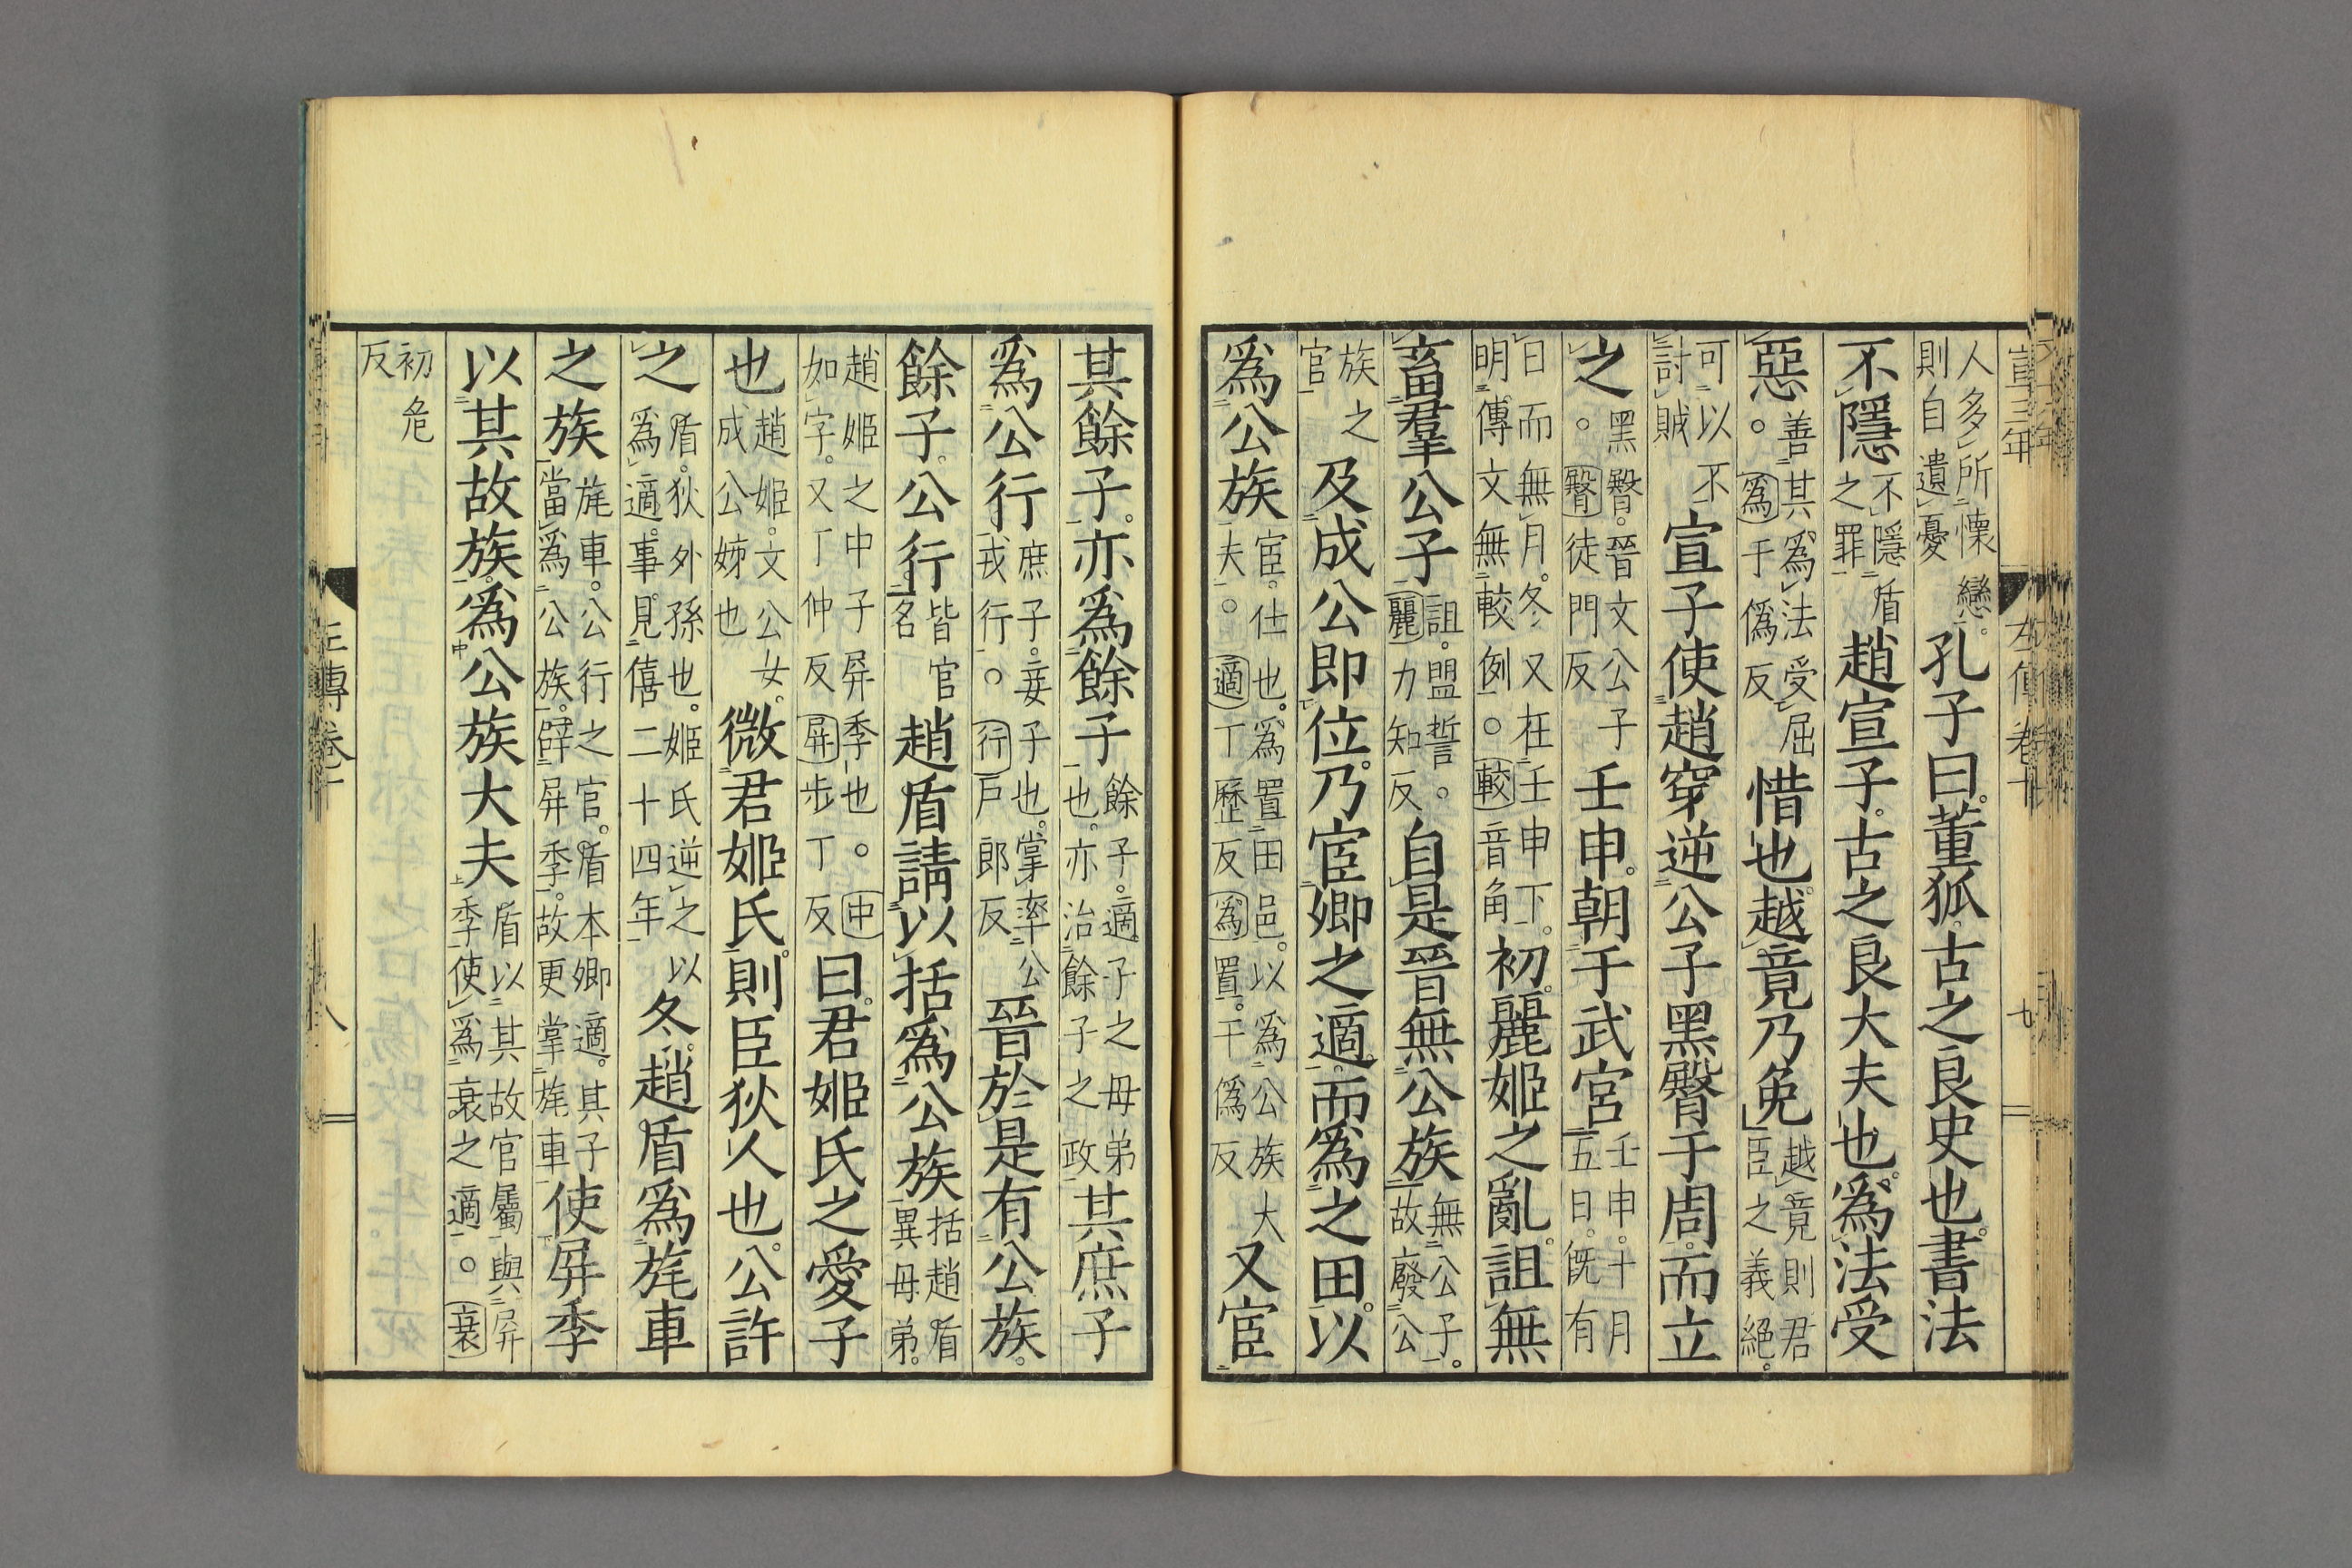 人多所懷戀則自遺憂孔子曰董狐古之良史也書法
不隱不隱盾之罪趙宣子古之良大夫也爲法受
惡善其爲法受屈。爲于僞反惜也越竟乃免越竟則君臣之義絕
可以不討賊宣子使趙穿逆公子黑臀于周而立
之黑臀晉文公子。臀徒門反壬申朝于武宮壬申十月五日既有
日而無月冬又在壬申下明傳文無較例。較音角初麗姬之亂詛無
畜羣公子詛盟誓。麗力知反自是晉無公族無公子故廢公
族之官及成公即位乃宦卿之適而爲之田以
爲公族宦仕也爲置田邑以爲公族大夫。適丁歷反爲置于僞反又宦
其餘子亦爲餘子餘子適子之母弟也亦治餘子之政其庶子
爲公行庶子妾子也掌率公戎行。行戶郎反晉於是有公族
餘子公行皆官名趙盾請以括爲公族括趙盾異母弟
趙姬之中子屏季也。中如字又丁仲反屏步丁反曰君姬氏之愛子
也趙姬文公女成公姊也微君姬氏則臣狄人也公許
之盾狄外孫也姬氏逆之以爲適事見僖二十四年冬趙盾爲旄車
之族旄車公行之官盾本卿適其子當爲公族辟屏季故更掌旄車使屏季
以其故族爲公族大夫盾以其故官屬與屏季使爲衰之適。衰
初危反
左傳卷十
八